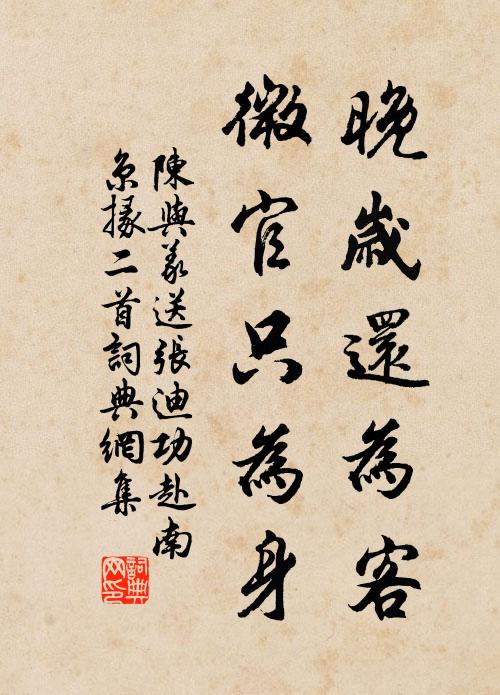 晚歲還為客
微官只為身
陳與義送張迪功赴南
京掾二首詞典網集
詞典
网印